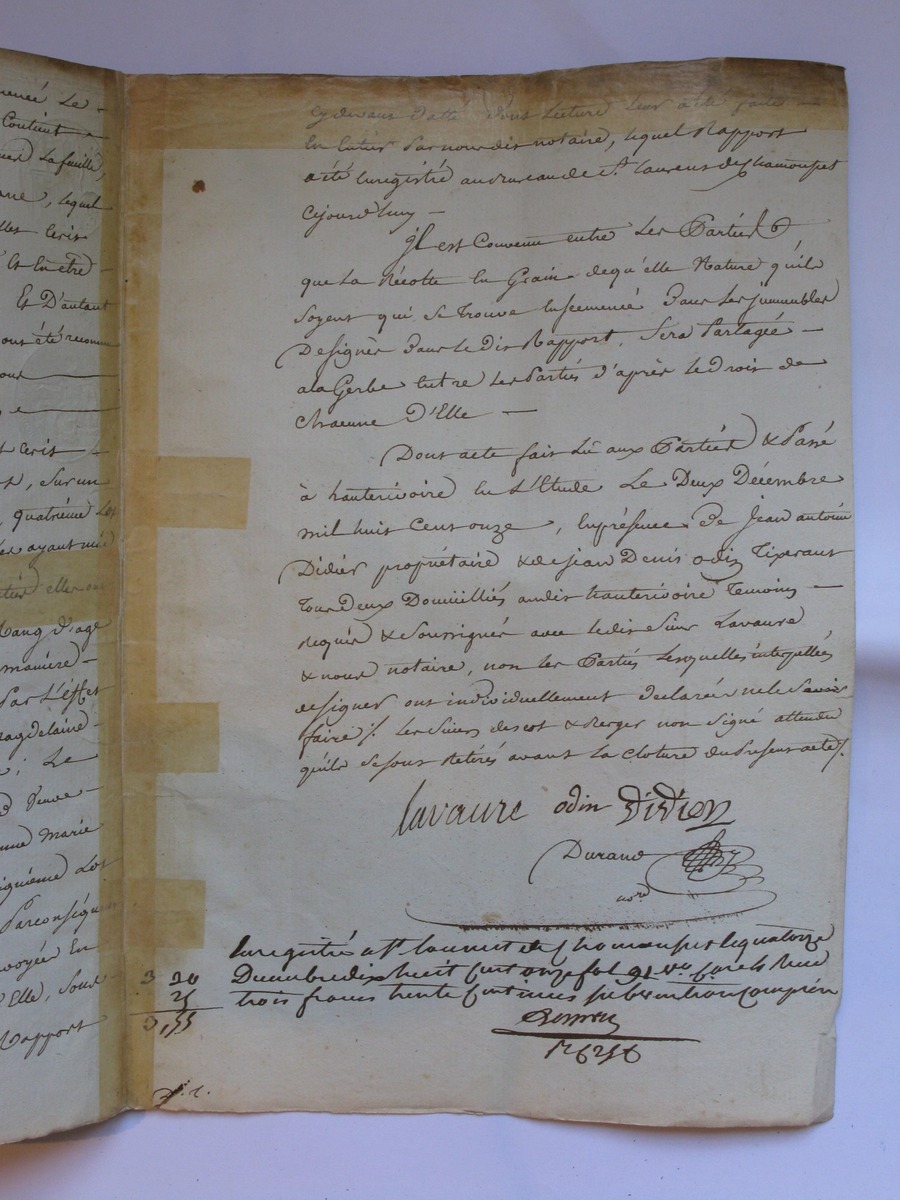 menée Le
Contient
La feuille,
lequel
Elles Ecris
Et En être
Et D'autant
ont été reconnu
Ecrit
, sur un
quatrième Lot
ayant
elles ont
Rang d'age
manière
Par L'effet
magdelaine
; Le
Veuve
Marie
Cinquième Lot
Par conséquent
envoyée En
d'Elle, sous
Rapport
cy devant Datté Dont Lecture Leur a été faite
En Entier Par nous dit notaire, lequel Rapport
a été Enregistré au Bureau de St. Laurent de Chamousset
cejourd'huy
jl est Convenu entre Les Parties
que La Récolte En Grain de qu'elle Nature qu'ils
soyent qui se trouve Ensemencé Dans Les jmmeubles
Designés Dans Le dit Rapport, Sera Partagée
a la Gerbe Entre Les Partiés d'après Le Droit de
Chacune D'Elle
Dont acte fait Lû aux Partiés & Passé
à hauterivoire En L'Etude Le Deux Décembre
mil huit Cent onze, En présence De Jean antoine
Didier propriétaire & de jean Denis odin Tixerant
Tous deux Domiciliés audit hauterivoire Temoins
requis & Soussignés avec ledit Sieur Lavaure
& nous notaire, non Les Partiés Lesquelles interpellées
de signer ont individuellement declarées ne le Savoir
faire /. Les Sieurs descot & Berger non Signé attendu
qu'ils se sont Retirés avant La Cloture du Present acte /.
lavaure odin Didier
Durand
nore
Enregistré a St laurent de Chamousset le quatorze
Decembre dix huit Cent onze fol 91 Vo Case 4 Reçu
3 30 trois francs trente Centimes subvention Comprise
25
3,55